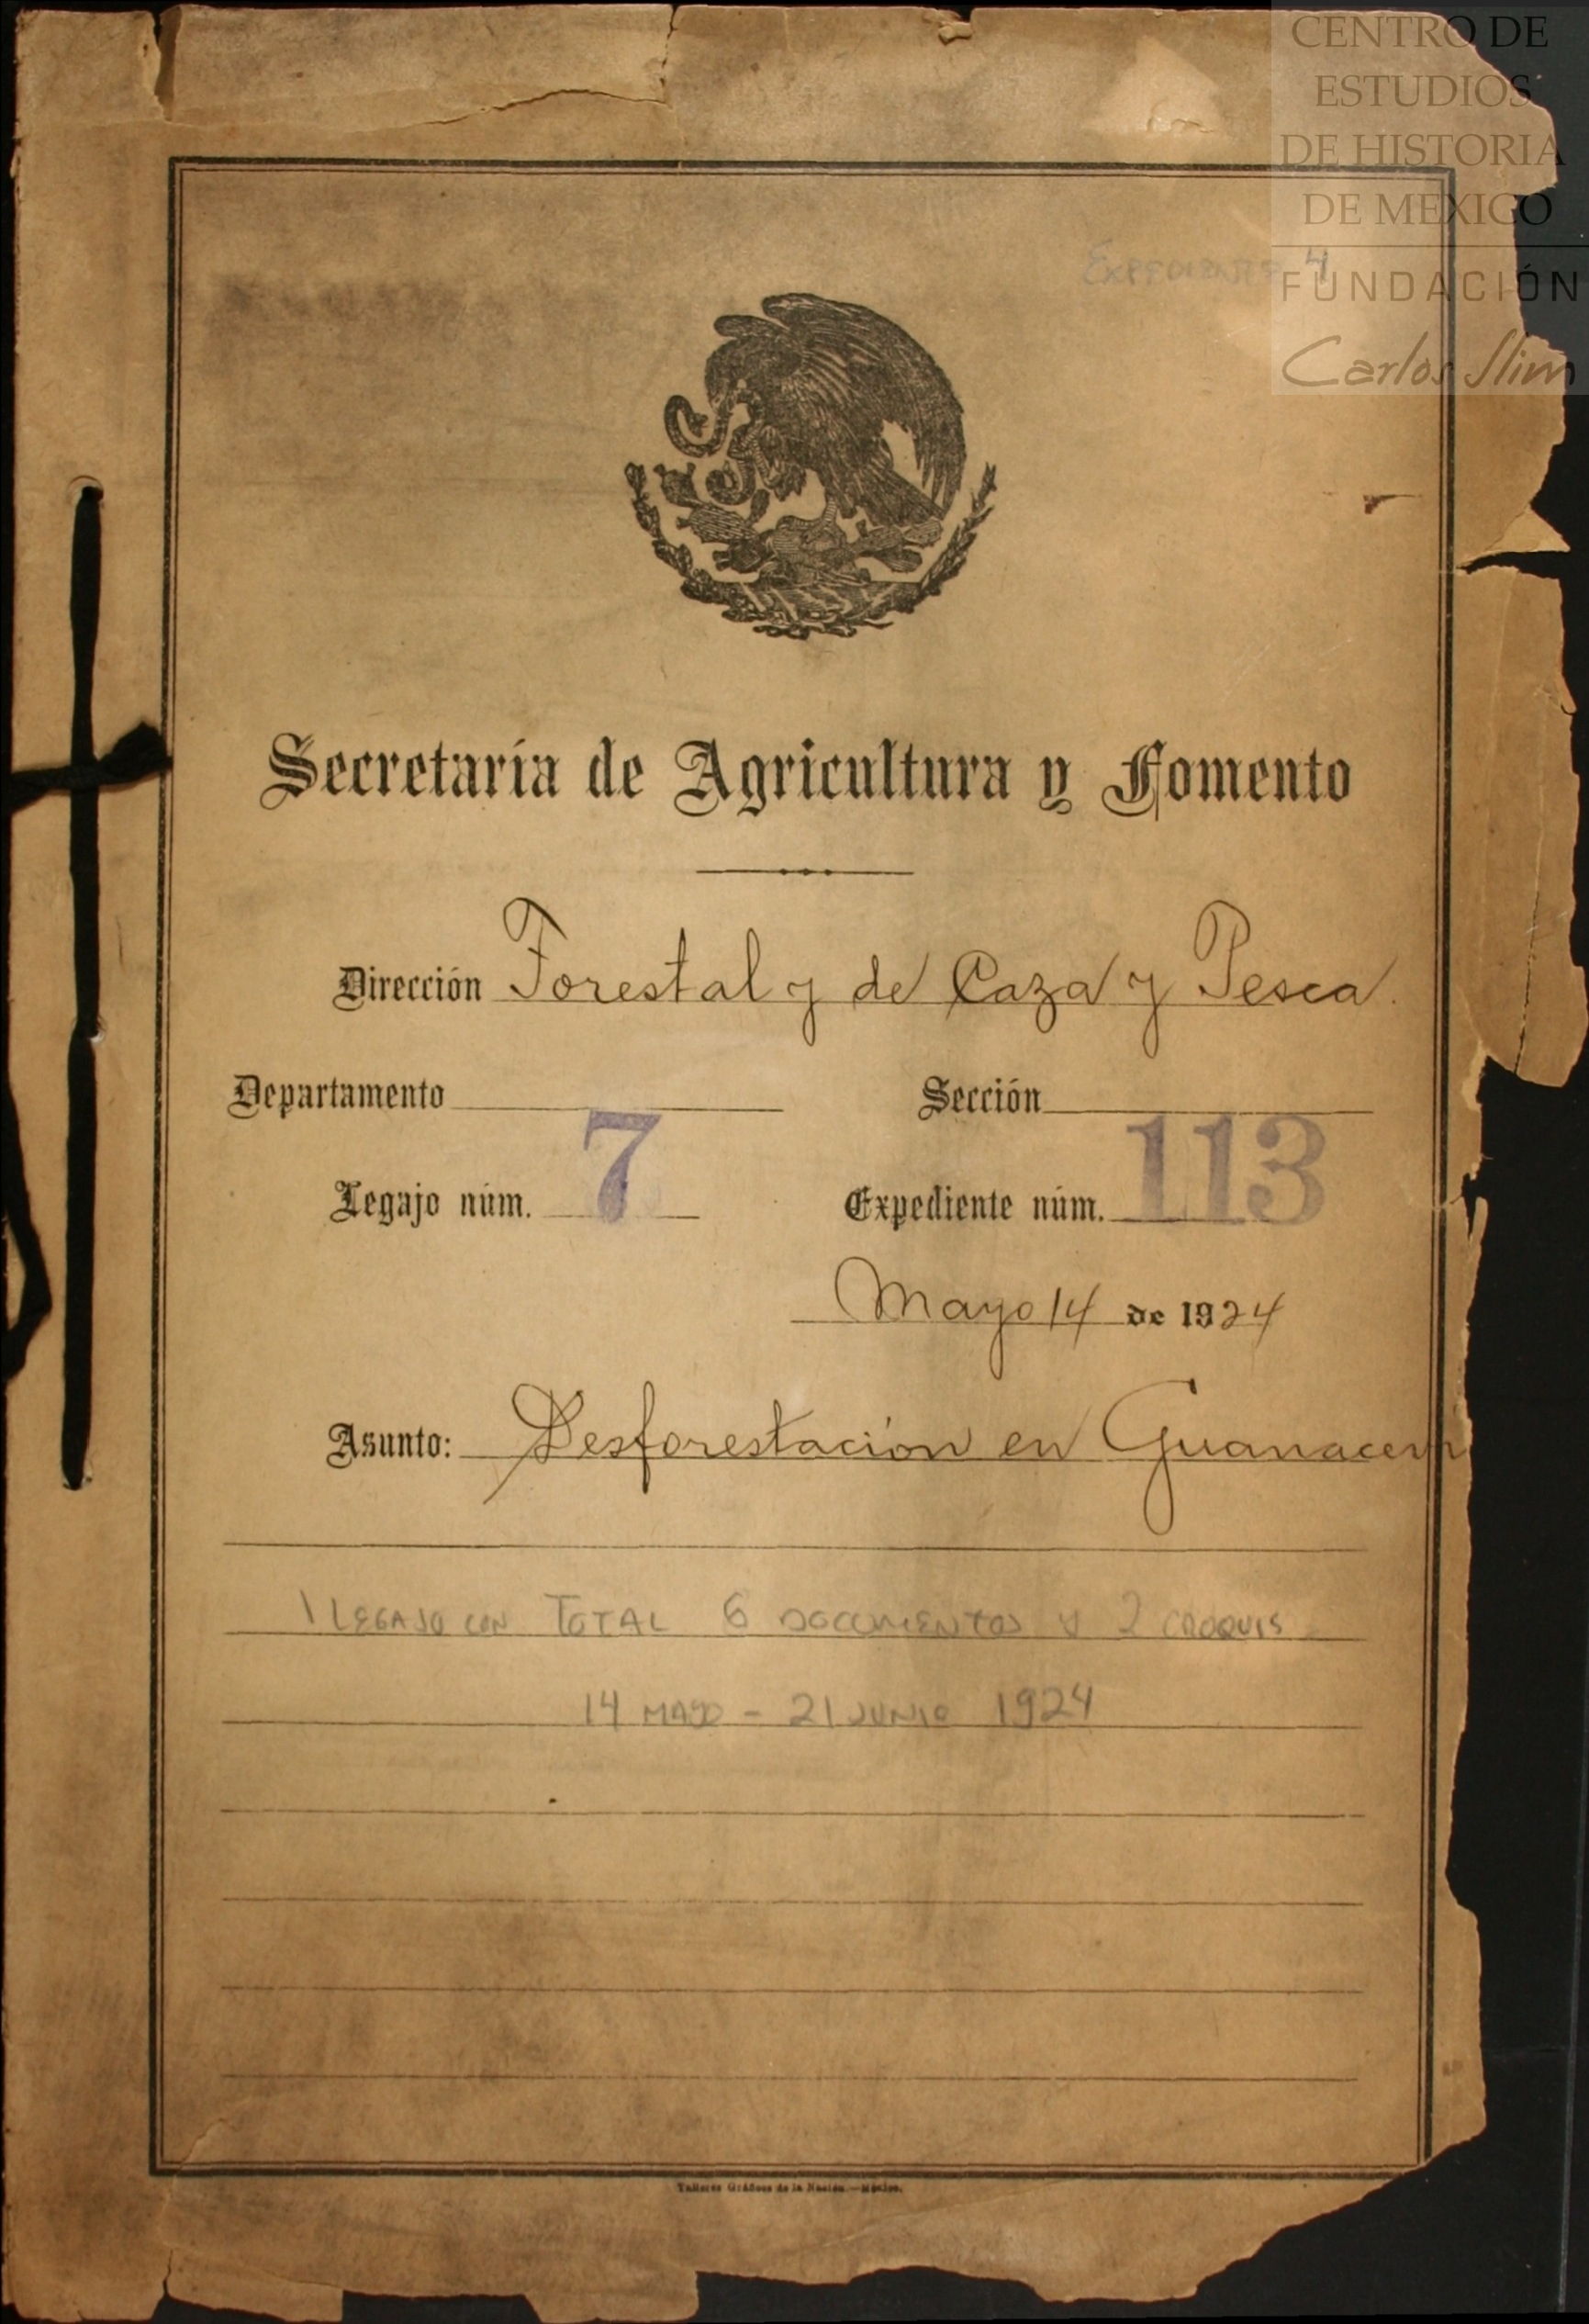 CENTRO DE
ESTUDIOS
DE HISTORIA
DE MEXICO
FUNDACIÓN
Carlos Slim
EXPEDIENTE 4
Secretaría de Agricultura y Fomento
Dirección Forestal y de Caza y Pesca.
Departamento Sección
Legajo núm. 7 Expediente núm. 113
Mayo 14 de 1924
Asunto: Desforestación en
1 LEGAJO CON TOTAL 6 DOCUMENTOS Y 2 CROQUIS
14 MAYO - 21 JUNIO 1924
Talleres Gráficos de la Nación.—México.